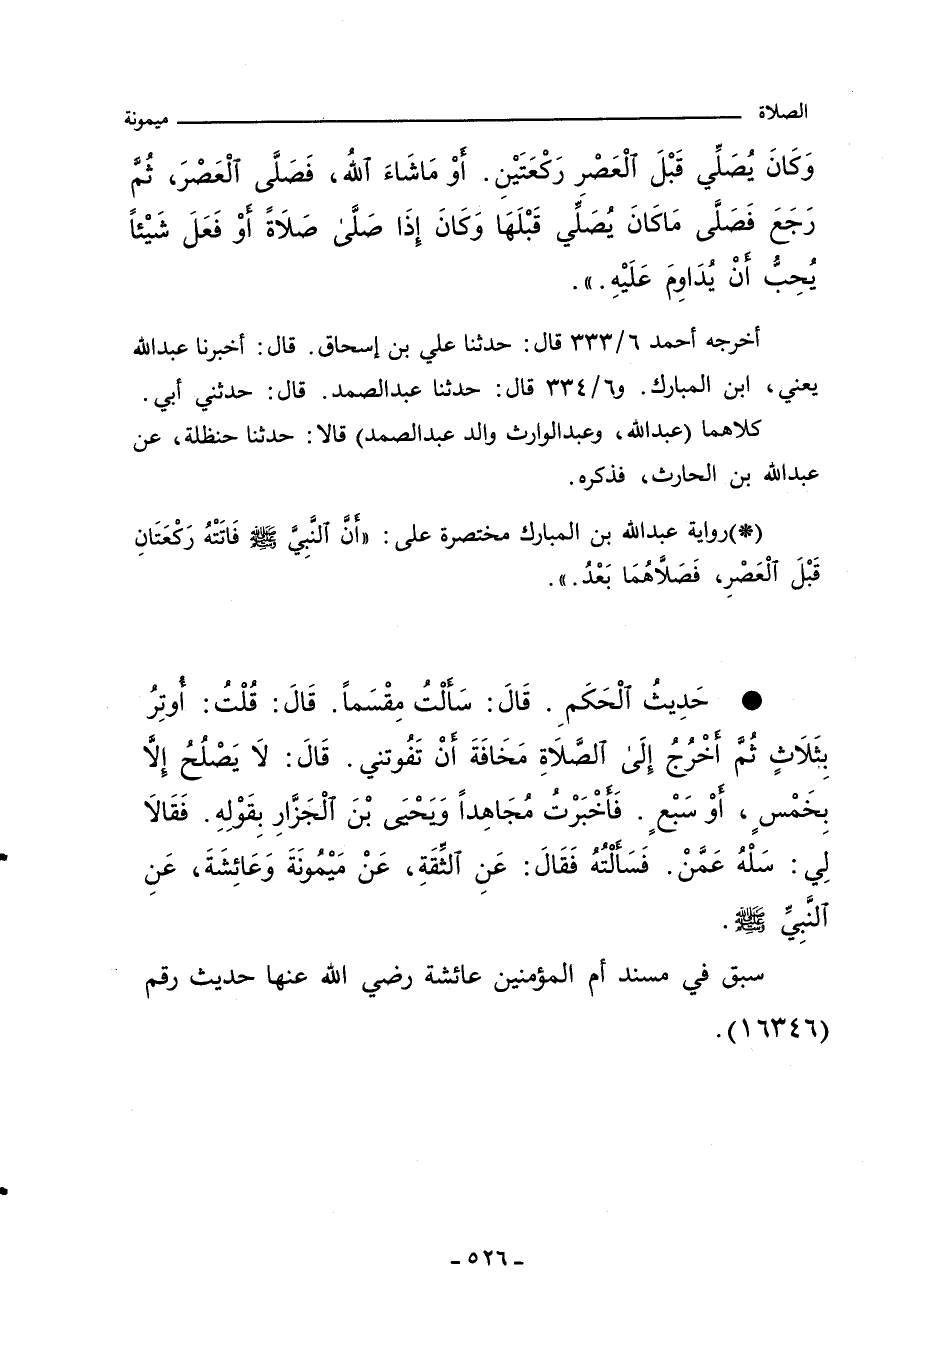 الصلاة ميمونة
وَكَانَ يُصَلِّي قَبْلَ ٱلْعَصْرِ رَكْعَتَيْنِ. أَوْ مَاشَاءَ ٱللهُ، فَصَلَّى ٱلْعَصْرَ، ثُمَّ
رَجَعَ فَصَلَّى مَاكَانَ يُصَلِّي قَبْلَهَا وَكَانَ إِذَا صَلَّىٰ صَلَاةً أَوْ فَعَلَ شَيْئاً
يُحِبُّ أَنْ يُدَاوِمَ عَلَيْهِ.».
أخرجه أحمد ٣٣٣/٦ قال: حدثنا علي بن إسحاق. قال: أخبرنا عبدالله
يعني، ابن المبارك. و٣٣٤/٦ قال: حدثنا عبدالصمد. قال: حدثني أبي.
كلاهما (عبدالله، وعبدالوارث والد عبدالصمد) قالا: حدثنا حنظلة، عن
عبدالله بن الحارث، فذكره.
(*)رواية عبدالله بن المبارك مختصرة على: «أَنَّ ٱلنَّبِيَّ ﷺ فَاتَتْهُ رَكْعَتَانِ
قَبْلَ ٱلْعَصْرِ، فَصَلَّاهُمَا بَعْدُ.».
● حَدِيثُ ٱلْحَكَمِ. قَالَ: سَأَلْتُ مِقْسَماً. قَالَ: قُلْتُ: أُوتِرُ
بِثَلَاثٍ ثُمَّ أَخْرُجُ إِلَىٰ ٱلصَّلَاةِ مَخَافَةَ أَنْ تَفُوتني. قَالَ: لَا يَصْلُحُ إِلَّا
بِخَمْسٍ، أَوْ سَبْعٍ. فَأَخْبَرْتُ مُجَاهِداً وَيَحْيَى بْنَ ٱلْجَزَّارِ بِقَوْلِهِ. فَقَالَا
لِي: سَلْهُ عَمَّنْ. فَسَأَلْتُهُ فَقَالَ: عَنِ ٱلثِّقَةِ، عَنْ مَيْمُونَةَ وَعَائِشَةَ، عَنِ
ٱلنَّبِيِّ ﷺ.
سبق في مسند أم المؤمنين عائشة رضي الله عنها حديث رقم
(١٦٣٤٦).
- ٥٢٦ -